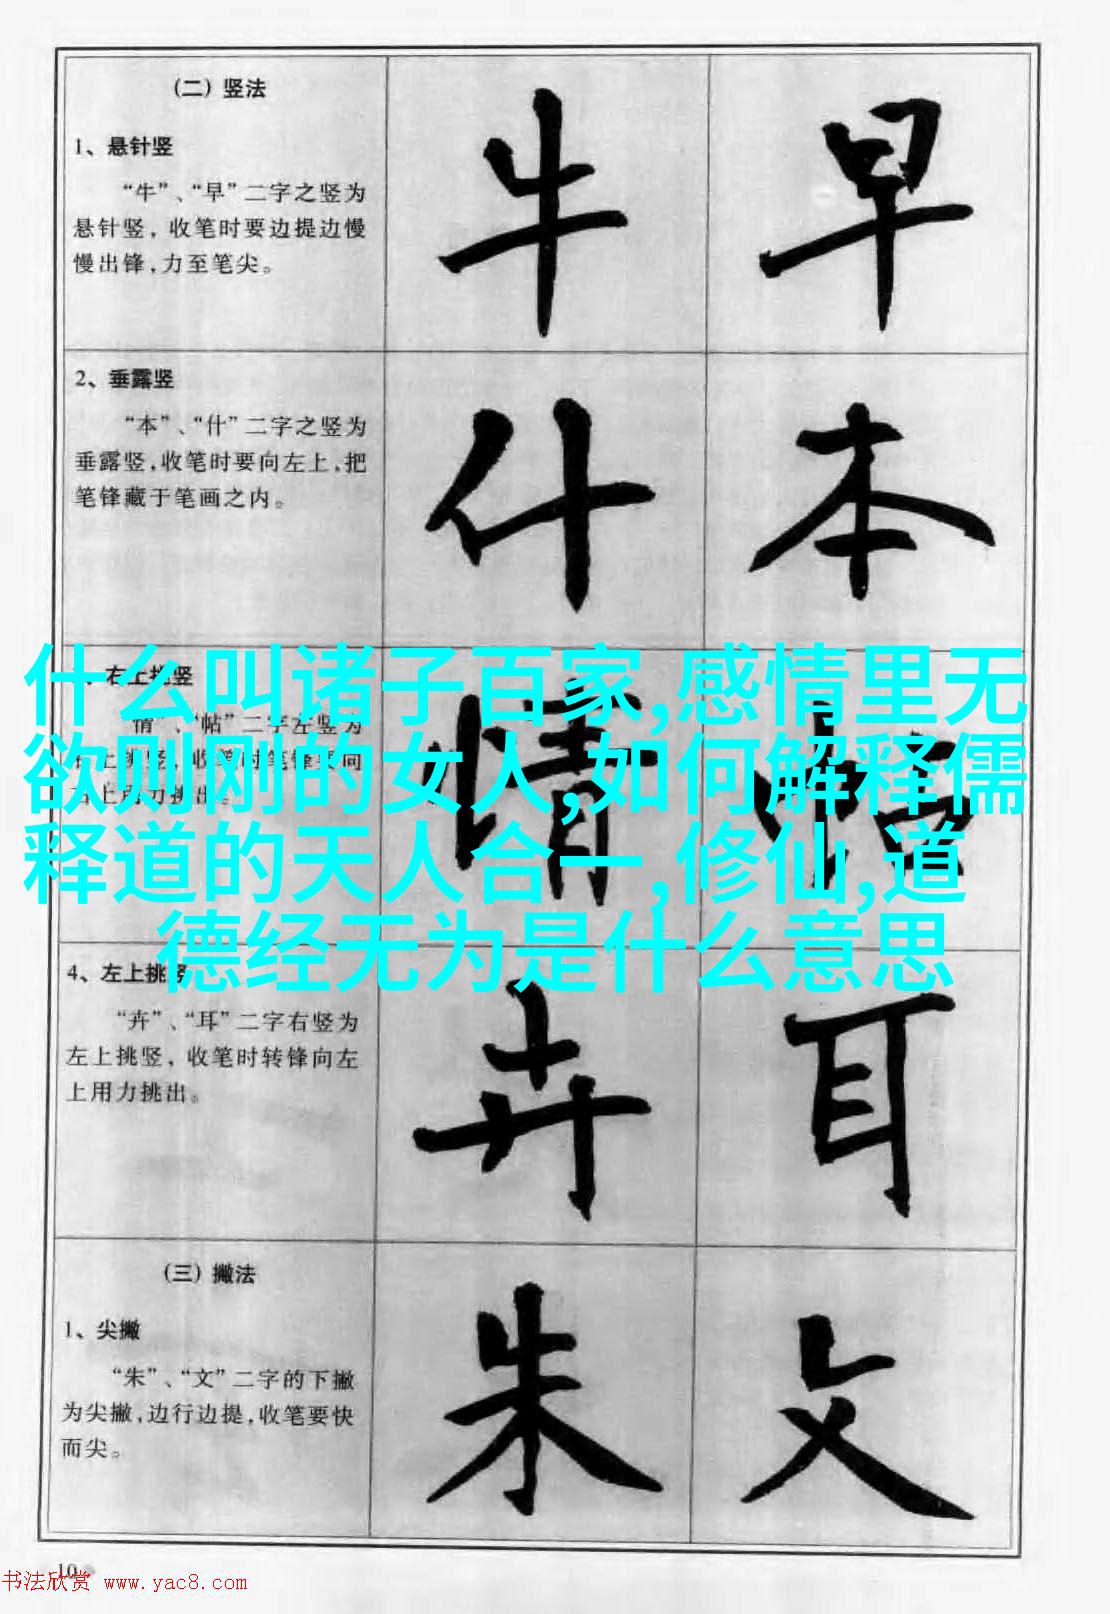 (二) 竖法
1、悬针竖
“牛”、“早”二字之竖为
悬针竖，收笔时要边提边慢
慢出锋，力至笔尖。
牛 早
2、垂露竖
“本”、“什”二字之竖为
垂露竖，收笔时要向左上，把
笔锋藏于笔画之内。
什 本
右上挑竖
“情”、“帖”二字左竖为
情 帖
什么叫诸子百家,感情里无
欲则刚的女人,如何解释儒
释道的天人合一,修仙,道
德经无为是什么意思
4、左上挑竖
“卉”、“耳”二字右竖为
左上挑竖，收笔时转锋向左
上用力挑出。
卉 耳
(三) 撇法
1、尖撇
“朱”、“文”二字的下撇
为尖撇，边行边提，收笔要快
而尖。
朱 文
10
书法欣赏 www.yac8.com